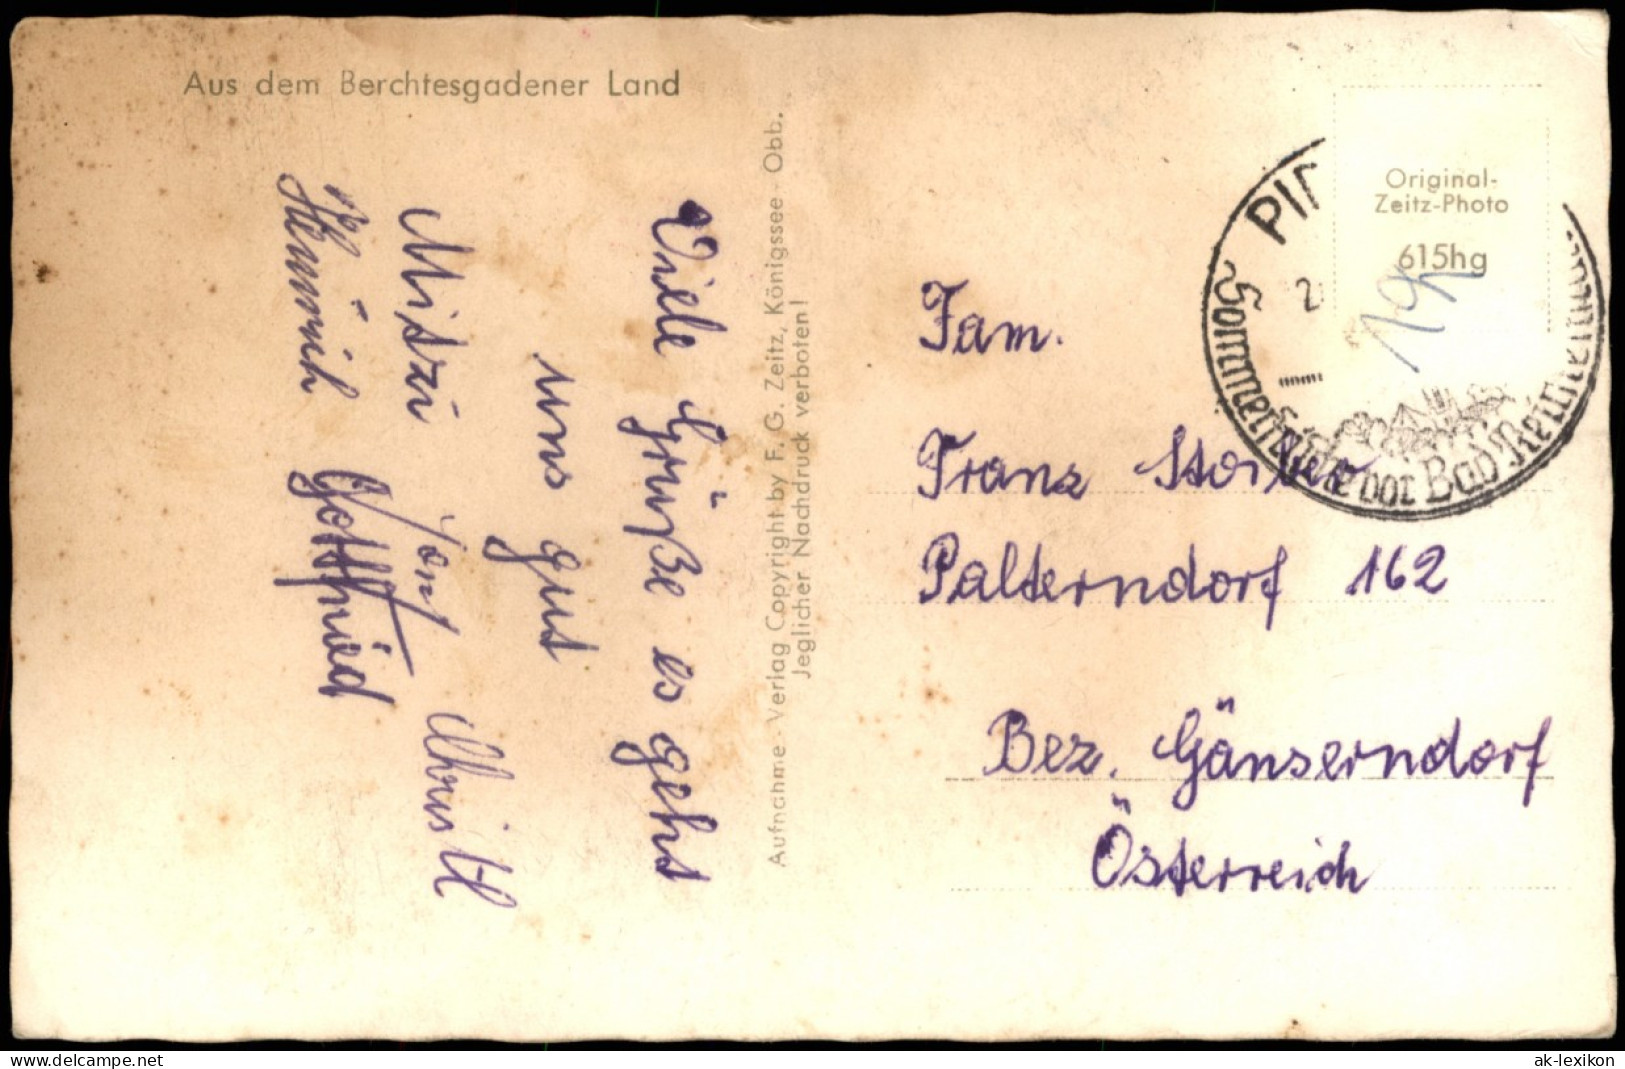 Aus dem Berchtesgadener Land
Viele Grüße es geht
uns gut
Mitzi Christl
Heinrich Gottfried
Aufnahme - Verlag Copyright by F. G. Zeitz, Königssee - Obb.
Jeglicher Nachdruck verboten!
Original-
Zeitz-Photo
615hg
Sommerfrische bei Bad
Fam.
Franz
Palterndorf 162
Bez. Gänserndorf
Österreich
www.delcampe.net
ak-lexikon